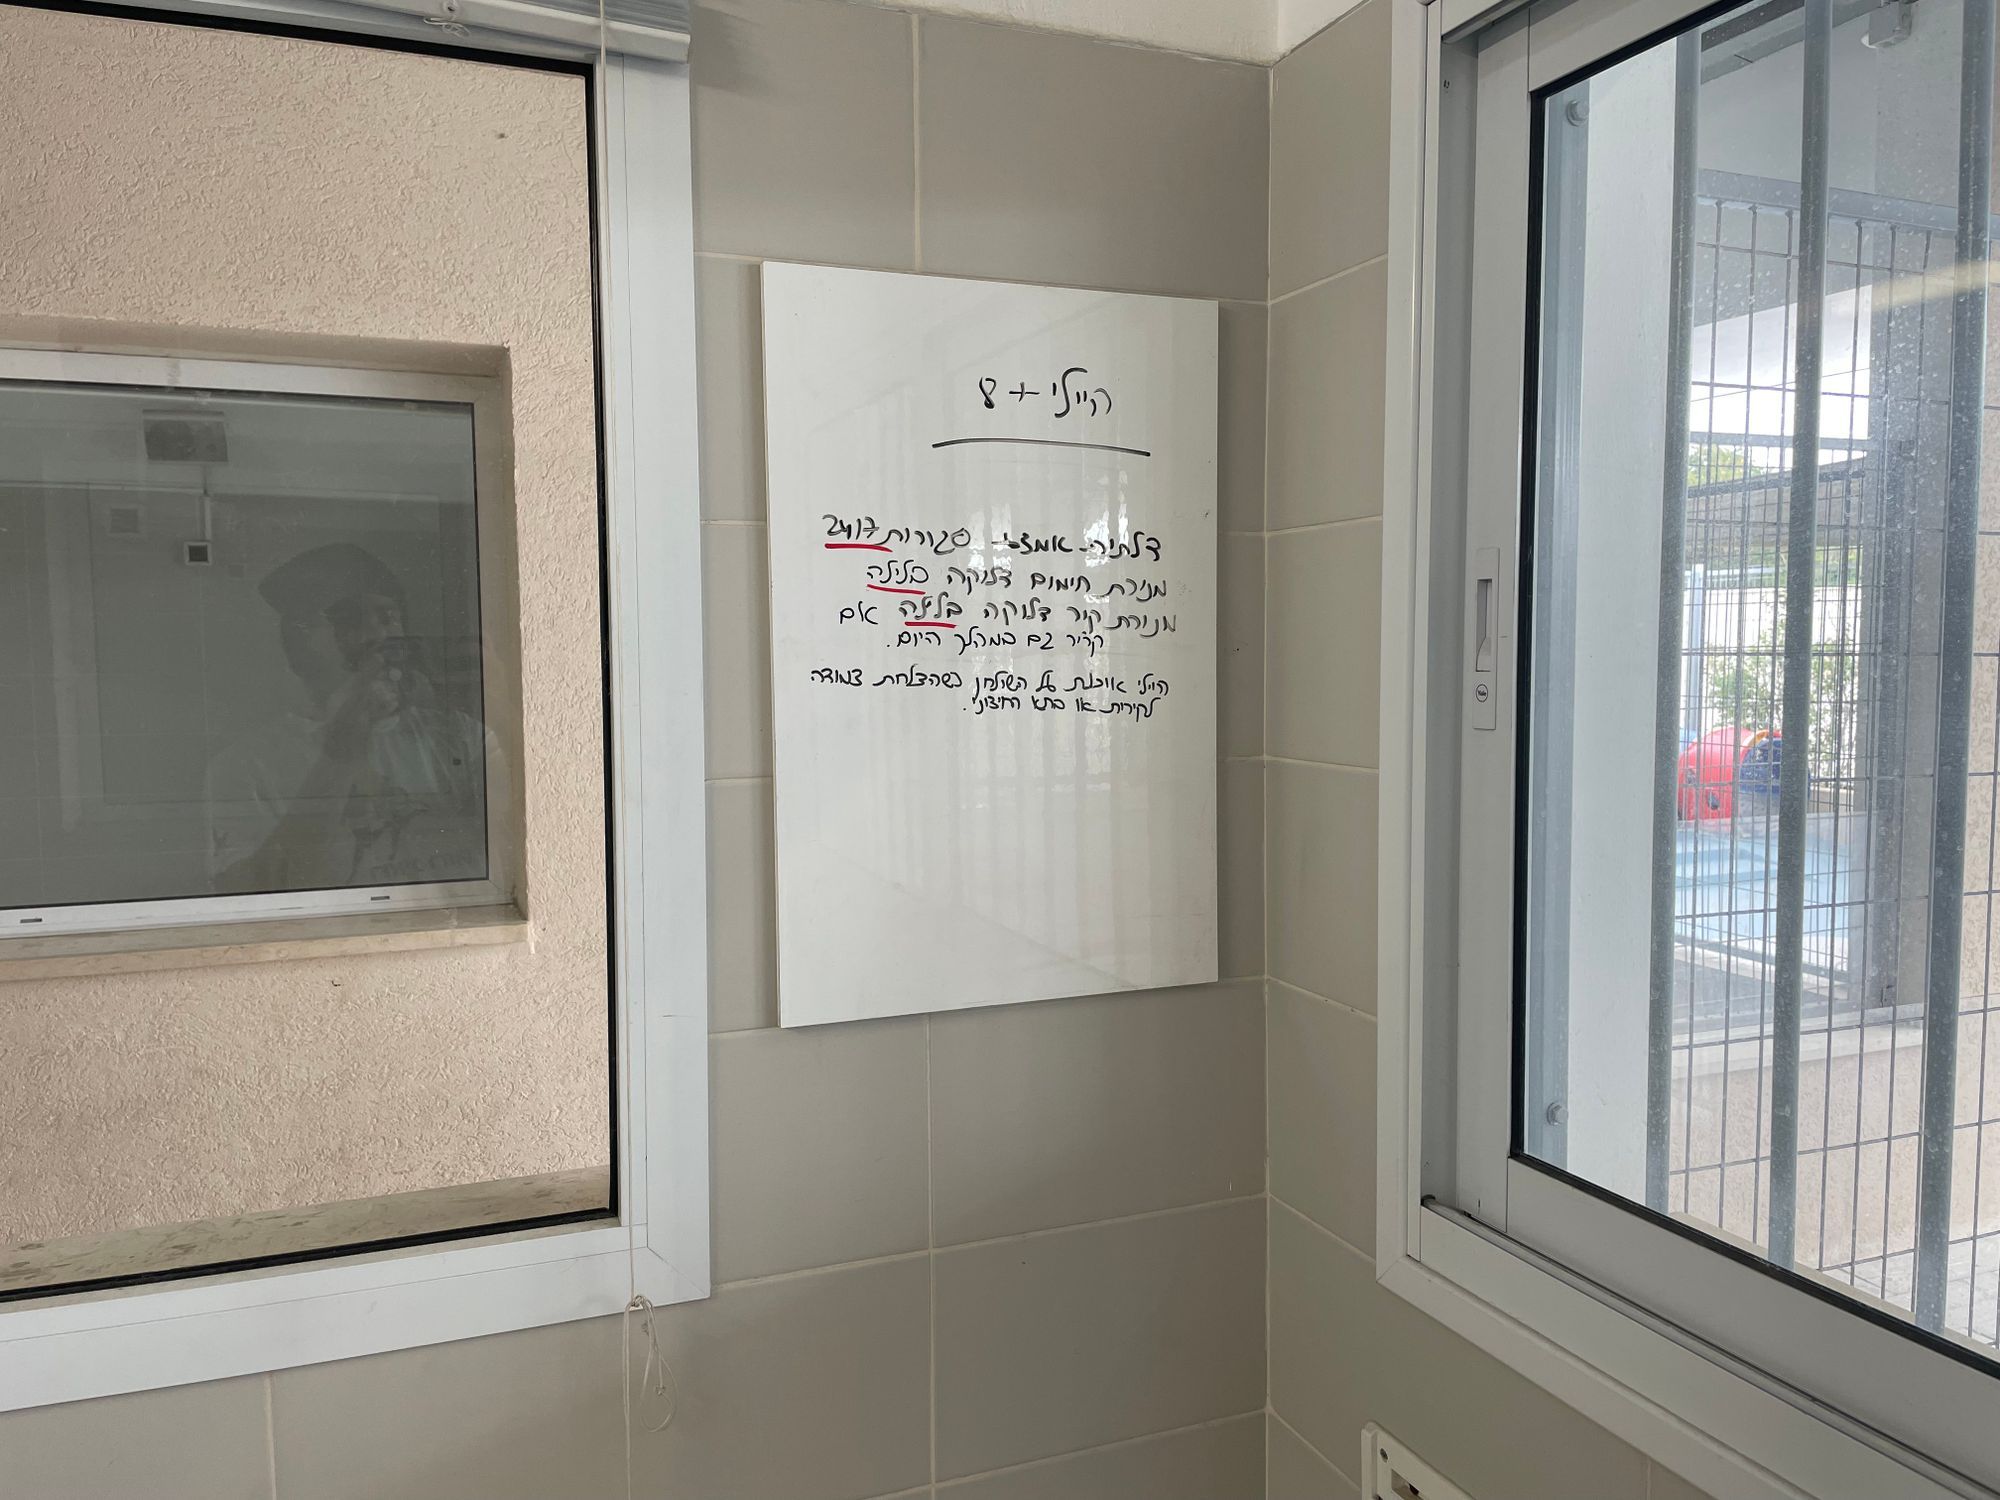 היילי + 8
דלתיה - אמצע - סגורות 24/7
מנורת חימום דלוקה בלילה
מנורת קיר דלוקה בלילה אם
קריר גם במהלך היום.
היילי אוכלת על השולחן כשהצלחת צמודה
לקירות או בתא החיצוני.